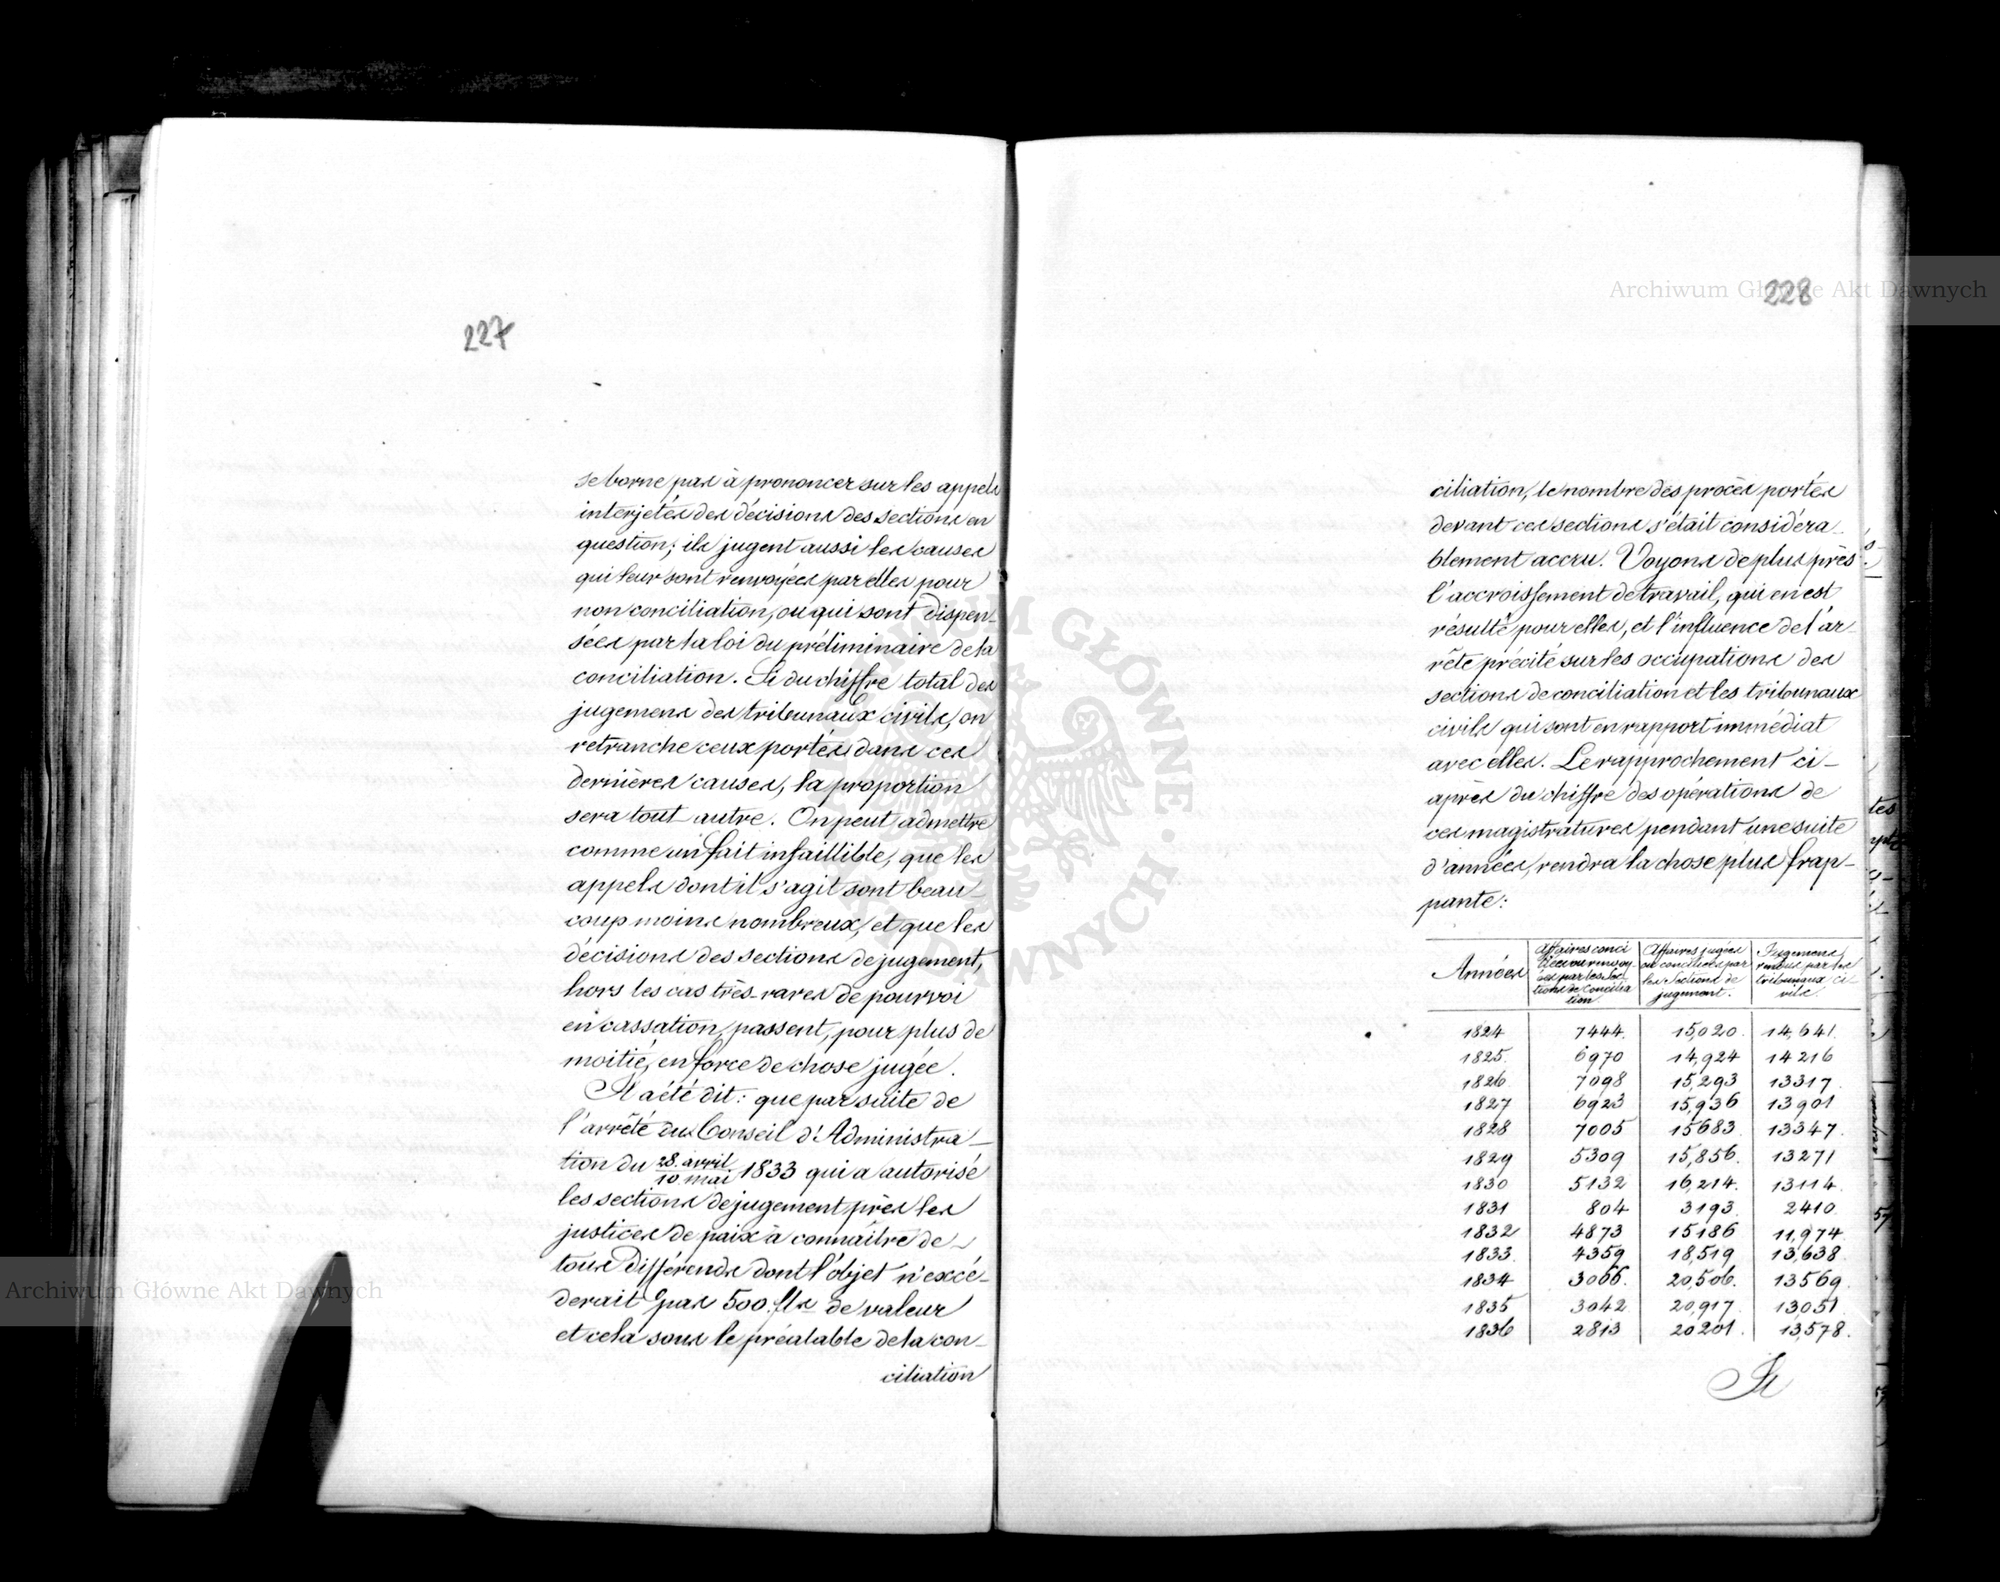 227
se borne pas à prononcer sur les appels
interjetés des décisions des sections en
question; ils jugent aussi les causes
qui leur sont renvoyées par elles pour
non conciliation, ou qui sont dispen-
sées par la loi du préliminaire de la
conciliation. Si du chiffre total des
jugemens des tribunaux civils, on
retranche ceux portés dans ces
dernières causes, la proportion
sera tout autre. On peut admettre
comme un fait infaillible, que les
appels dont il s'agit sont beau-
coup moins nombreux, et que les
décisions des sections de jugement,
hors les cas très-rares de pourvoi
en cassation, passent, pour plus de
moitié, en force de chose jugée.
Il a été dit: que par suite de
l'arrêté du Conseil d'Administra-
tion du 28. avril/10 mai 1833 qui a autorisé
les sections de jugement près les
justices de paix à connaître de
tous différends dont l'objet n'excé-
derait pas 500. fls de valeur
et cela sous le préalable de la con-
ciliation
228
ciliation, le nombre des procès portés
devant ces sections s'était considéra-
blement accru. Voyons de plus près
l'accroissement de travail, qui en est
résulté pour elles, et l'influence de l'ar-
rêté précité sur les occupations des
sections de conciliation et les tribunaux
civils qui sont en rapport immédiat
avec elles. Le rapprochement ci-
après du chiffre des opérations de
ces magistratures pendant une suite
d'années, rendra la chose plus frap-
pante:
Années | Affaires conciliées ou renvoyées par les Sections de Conciliation | Affaires jugées ou conciliées par les Sections de jugement. | Jugemens rendus par les tribunaux civils.
1824 7444. 15,020. 14,641.
1825. 6970 14,924 14216
1826 7098 15,293 13317.
1827 6923 15,936 13901
1828 7005 15683. 13347.
1829 5309 15,856. 13271
1830 5132 16,214. 13114.
1831 804 3193. 2410.
1832 4873 15186 11,974.
1833. 4359 18,519 13,638.
1834 3066. 20,506. 13569.
1835 3042 20,917. 13051.
1836 2813 20201. 13,578.
Archiwum Główne Akt Dawnych
Archiwum Główne Akt Dawnych